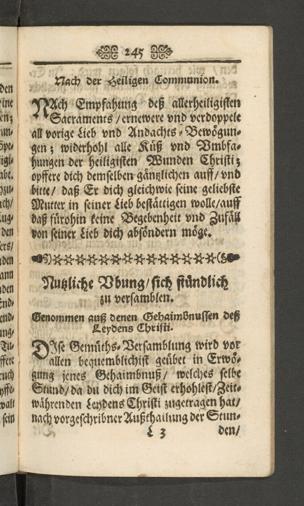 245
Nach der Heiligen Communion.
NAch Empfahung deß allerheiligisten
Sacraments / ernewere vnd verdopple
all vorige Lieb vnd Andachts-Bewögun-
gen; widerhohl alle Küß vnd Vmbfa-
hungen der heiligisten Wunden Christi;
opffere dich demselben gäntzlichen auff / vnd
bitte / daß Er dich gleichwie seine geliebste
Mutter in seiner Lieb bestättigen wolle / auff
daß fürohin keine Begebenheit vnd Zufäll
von seiner Lieb dich absöndern möge.
Nutzliche Vbung / sich stündlich
zu versamblen.
Genommen auß denen Gehaimbnussen deß
Leydens Christi.
DIse Gemüths-Versamblung wird vor
allen bequemblichist geübet in Erwö-
gung jenes Gehaimbnuß / welches selbe
Stund / da du dich im Geist erhohlest / Zeit-
währenden Leydens Christi zugetragen hat /
nach vorgeschribner Außthailung der Stun-
L 3
den /